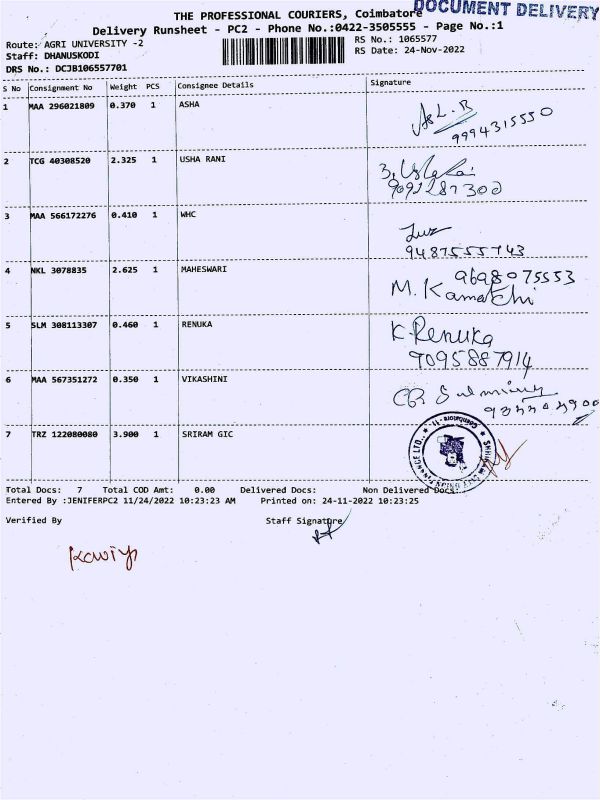 DOCUMENT DELIVERY
THE PROFESSIONAL COURIERS, Coimbatore
Delivery Runsheet - PC2 - Phone No.:0422-3505555 - Page No.:1
Route: AGRI UNIVERSITY -2 RS No.: 1065577
Staff: DHANUSKODI RS Date: 24-Nov-2022
DRS No.: DCJB106557701
S No Consignment No Weight PCS Consignee Details Signature
1 MAA 296021809 0.370 1 ASHA
9994315550
2 TCG 40308520 2.325 1 USHA RANI
9092287300
3 MAA 566172276 0.410 1 WHC
9487555743
4 NKL 3078835 2.625 1 MAHESWARI 9698075553
M. Kamatchi
5 SLM 308113307 0.460 1 RENUKA K.Renuka
9095887914
6 MAA 567351272 0.350 1 VIKASHINI
7 TRZ 122080080 3.900 1 SRIRAM GIC
Total Docs: 7 Total COD Amt: 0.00 Delivered Docs: Non Delivered Docs:
Entered By :JENIFERPC2 11/24/2022 10:23:23 AM Printed on: 24-11-2022 10:23:25
Verified By Staff Signatpre